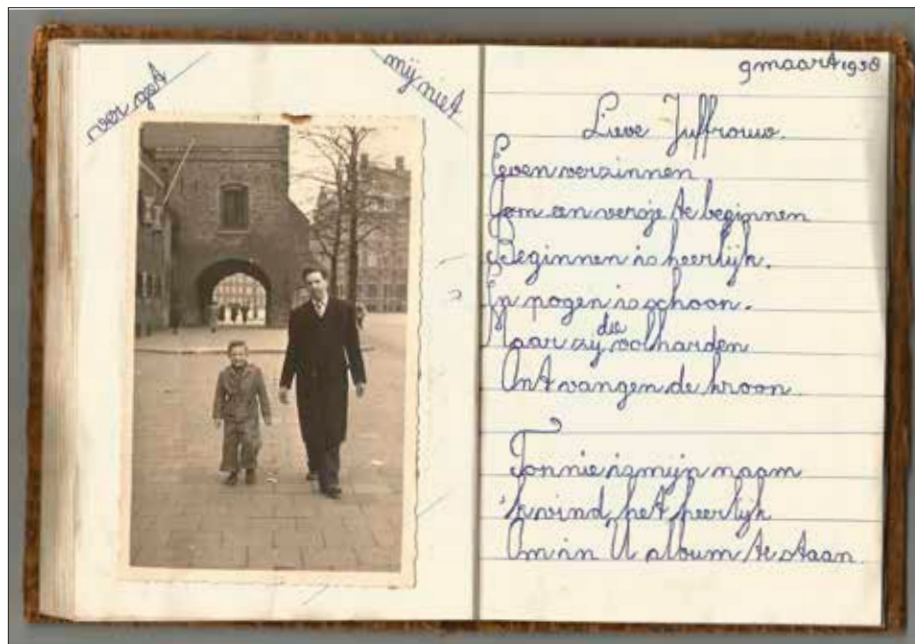 ver get
mij niet
9 maart 1958
Lieve Juffrouw.
Even verzinnen
Om en versje te beginnen
Beginnen is heerlijk.
En pogen is schoon.
Maar zij die volharden
Ontvangen de kroon.
Tonnie is mijn naam
'k vind het heerlijk
Om in U album te staan.